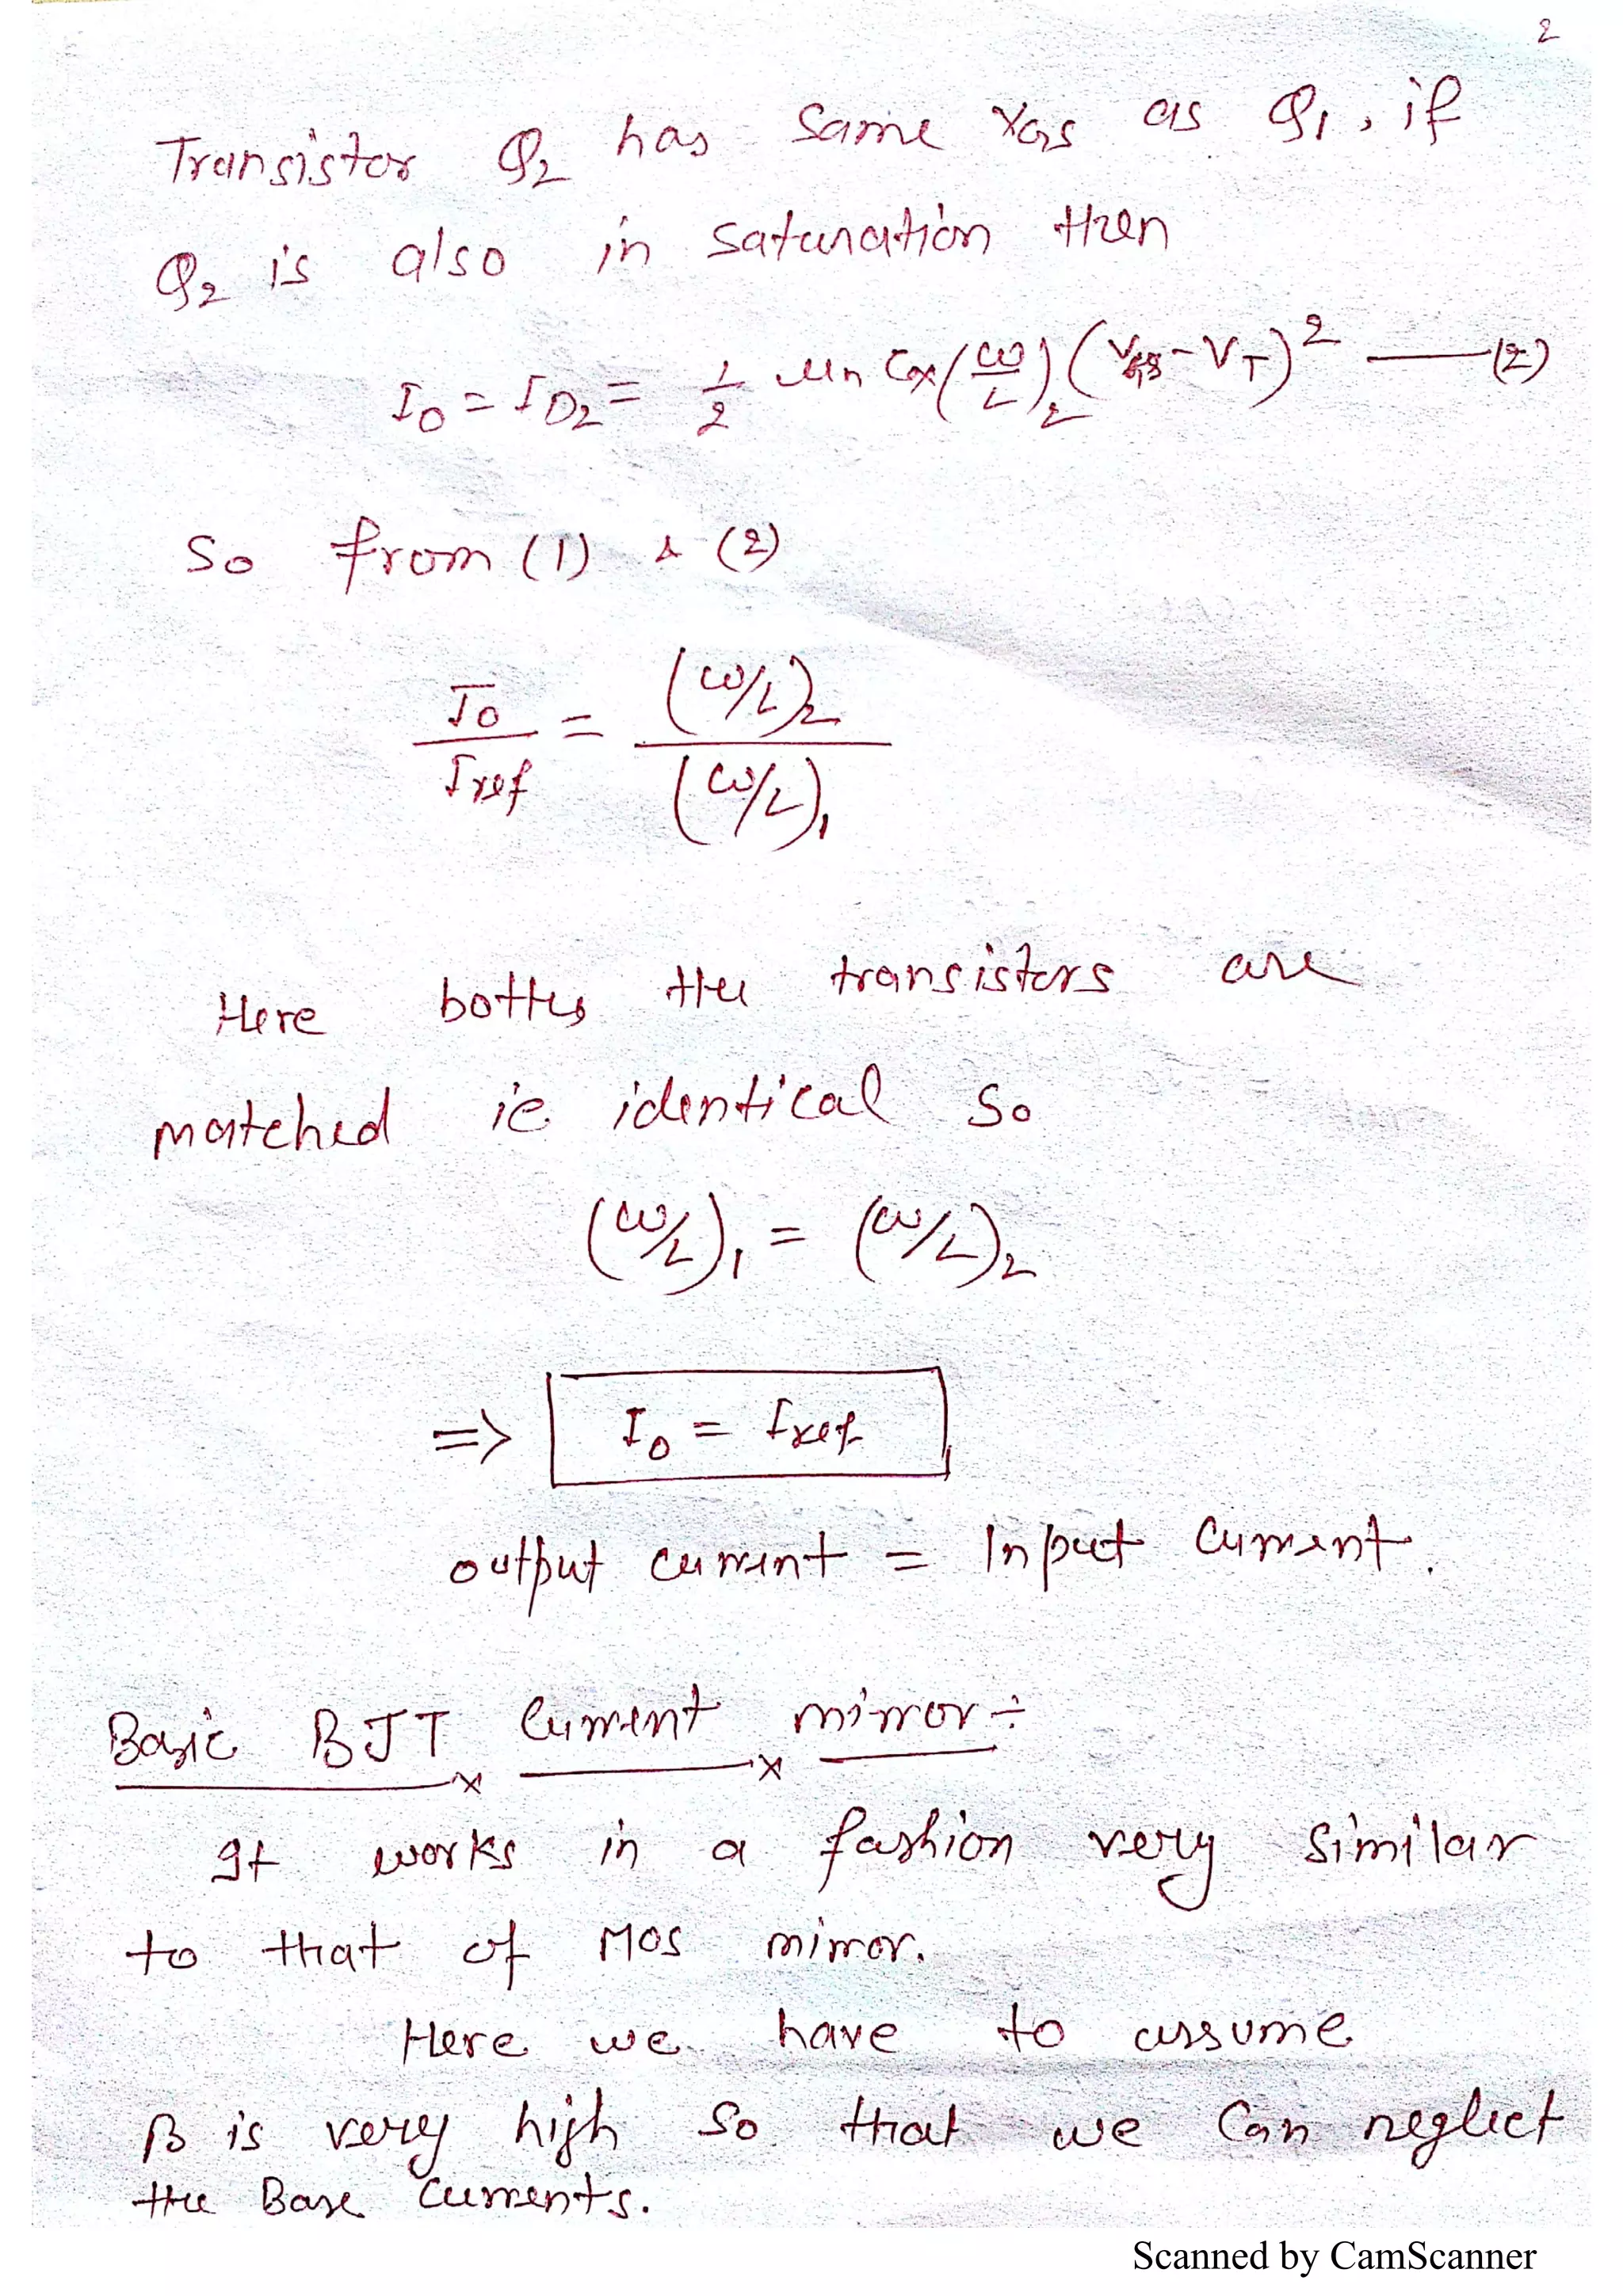 2
Transistor Q2 has same VGS as Q1, if
Q2 is also in saturation then
I0 = ID2 = 1/2 μn Cox (W/L)2 (VGS - VT)² —— (2)
So from (1) & (2)
I0/Iref = (W/L)2 / (W/L)1
Here both the transistors are
matched ie identical so
(W/L)1 = (W/L)2
=> I0 = Iref
output current = Input current.
Basic BJT Current mirror ÷
It works in a fashion very similar
to that of MOS mirror.
Here we have to assume
β is very high so that we can neglect
the Base currents.
Scanned by CamScanner